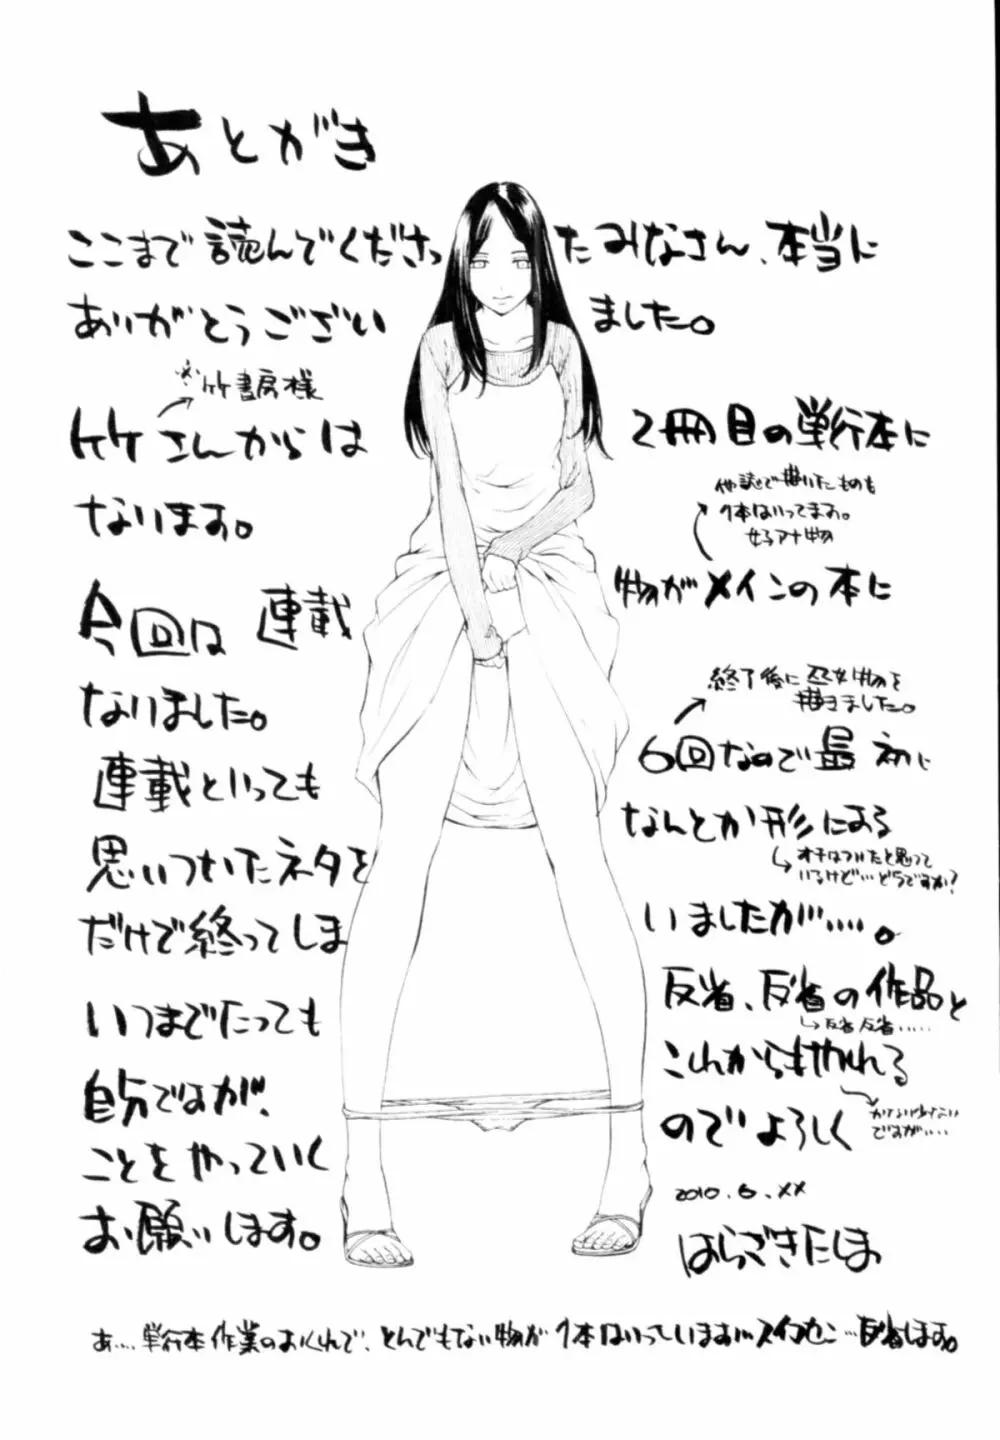 あとがき
ここまで読んでくださったみなさん、本当に
ありがとうございました。
※竹書房様
竹さんからは2冊目の単行本に
なります。
他誌で描いたものも
1本はいってます。
女子アナ物
今回は連載物がメインの本に
なりました。
終了後に
描きました。
連載といっても6回なので最初に
思いついたネタをなんとか形にある
オチはついたと思って
いるけど…どうですか?
だけで終ってしまいましたが……。
いつまでたっても反省、反省の作品と
反省反省……
自分ですが、これからもやれる
かなり少ない
ですが……
ことをやっていくのでよろしく
お願いします。
2010.6.××
はらざきたくま
あ…、単行本作業のおくれで、とんでもない物が1本はいっています…スイマセン…反省します。